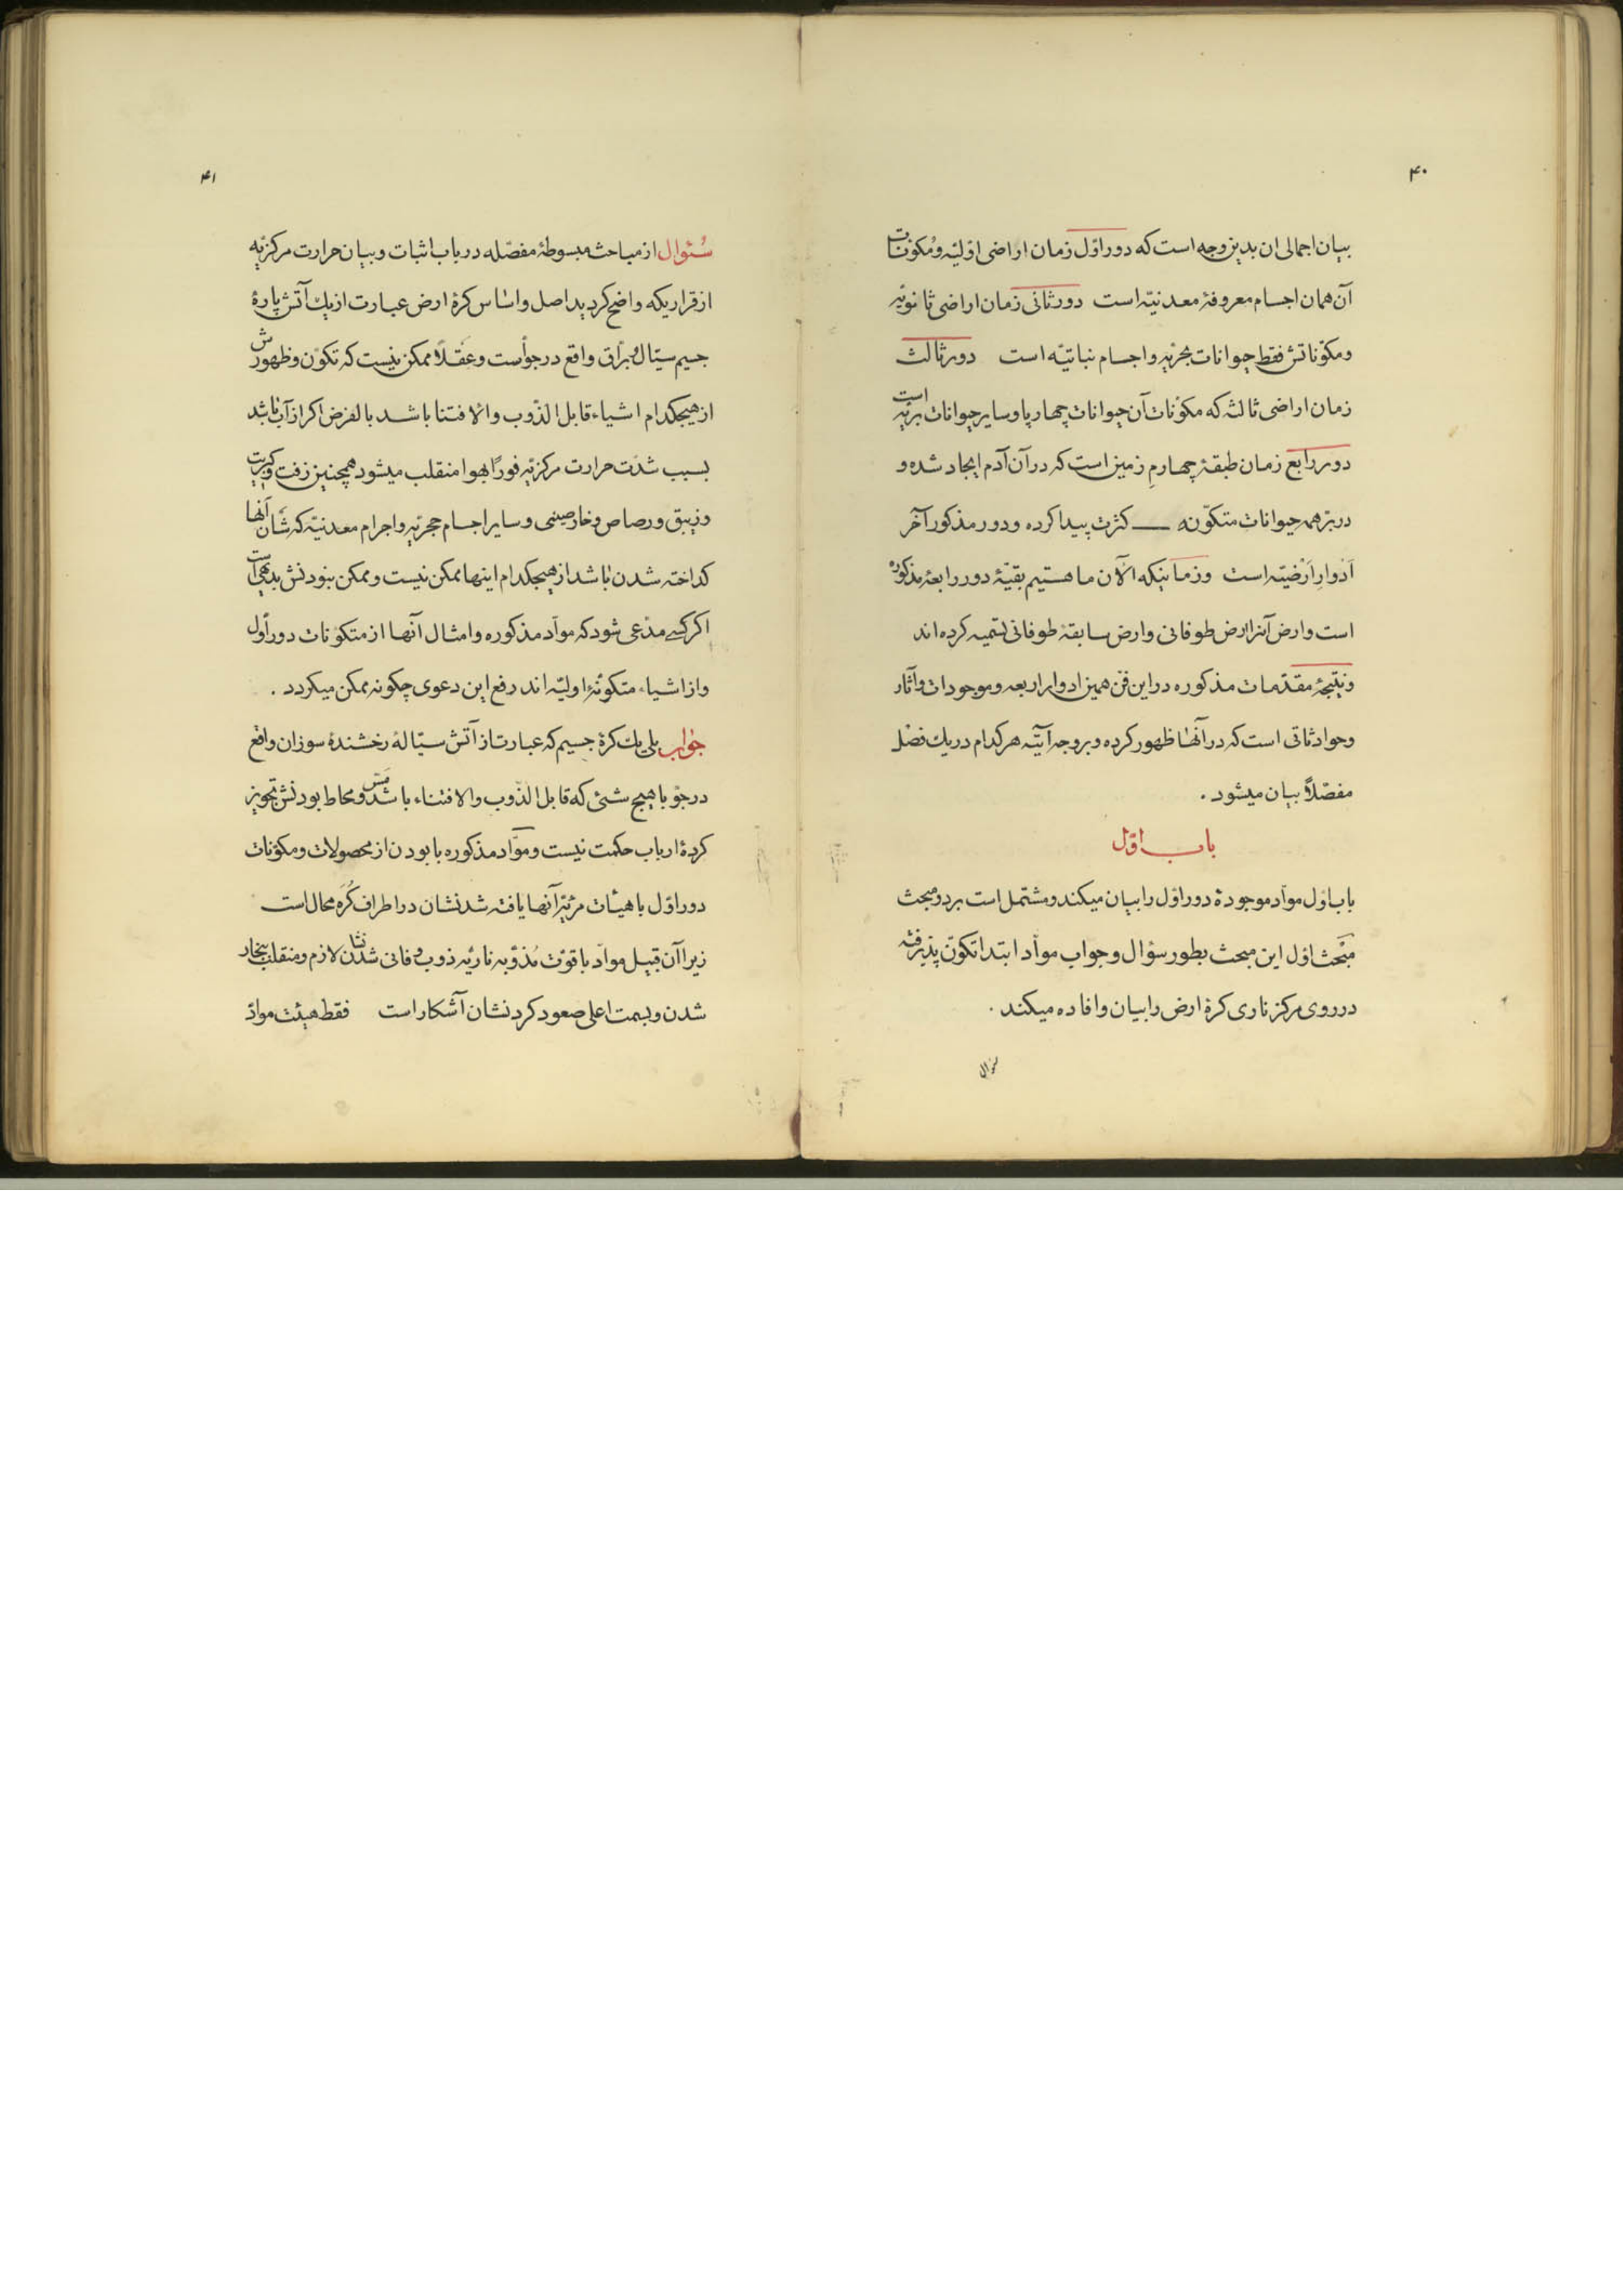 ۴۰
بیان اجمالی ان بدین وجه است که دور اوّل زمان اراضی اوّلیّه و مُکوّنات
آن همان اجسام معروفهٔ معدنیّه است دور ثانی زمان اراضی ثانویّه
و مکوّناتش فقط حیوانات بحریّه و اجسام نباتیّه است دور ثالث
زمان اراضی ثالثه که مکوّنات آن حیوانات چهارپا و سایر حیوانات برّیّه است
دور رابع زمان طبقهٔ چهارمِ زمین است که در آن آدم ایجاد شده و
در بّر همه حیوانات متکوّنه کثرت پیدا کرده و دور مذکور آخر
اَدوارِ اَرْضیّه است و زمانیکه الآن ما هستیم بقیّهٔ دور رابعهٔ مذکوره
است و ارض آنرا ارض طوفانی و ارض سابقهٔ طوفانی تسمیه کرده اند
و نتیجهٔ مقدّمات مذکوره در این فن همین ادوار اربعه و موجودات و آثار
و حوادثاتی است که در آنها ظهور کرده و بر وجه آتیّه هر کدام در یك فصْل
مفصّلاً بیان میشود .
باب اوّل
باب اوّل موادّ موجودهٔ دور اوّل را بیان میکند و مشتمل است بر دو مبحث
مَبْحث اوّل این مبحث بطور سؤال و جواب موادّ ابتدا تکوّن پذیرفته
در روی مرکز ناری کرهٔ ارض را بیان و افاده میکند .
سؤال
۴۱
سُئوال از مباحث مبسوطهٔ مفصّله در باب اثبات و بیان حرارت مرکزیّه
از قراریکه واضح کردید اصل و اساس کرهٔ ارض عبارت از یك آتش پارهٔ
جسیم سیّال و برّاق واقع در جوّاست و عقلاً ممکن نیست که تکوّن و ظهورش
از هیچکدام اشیاء قابل الذّوب والافتنا باشد بالفرض اکر از آب باشد
بسبب شدّت حرارت مرکزیّه فوراً بهوا منقلب میشود همچنین زفت و کبریت
و زیبق و رصاص و خارصینی و سایر اجسام حجریّه و اجرام معدنیّه که شأن آنها
کداخته شدن باشد از هیچکدام اینها ممکن نیست و ممکن نبودنش بدیهی است
اکر کسی مدّعی شود که موادّ مذکوره و امثال آنها از متکوّنات دور اوّل
و از اشیاء متکوّنهٔ اولیّه اند رفع این دعوی چکونه ممکن میکردد .
جواب بلی یك کرهٔ جسیم که عبارت از آتش سیّالهٔ رخشندهٔ سوزان واقع
در جوّ با هیچ شیئ که قابل الذّوب والافتناء باشد و محاط بودنش تجویز
کردهٔ ارباب حکمت نیست و موادّ مذکوره با بودن از محصولات و مکوّنات
دور اوّل با هیئات مرئیّهٔ آنها یافته شدنشان در اطراف کُرَه محال است
زیرا آن قبیل موادّ با قوّت مُذوّبه ناریّه ذوب و فانی شدنشان لازم و منقلب ببخار
شدن و بسمت اعلی صعود کردنشان آشکار است فقط هیئت موادّ